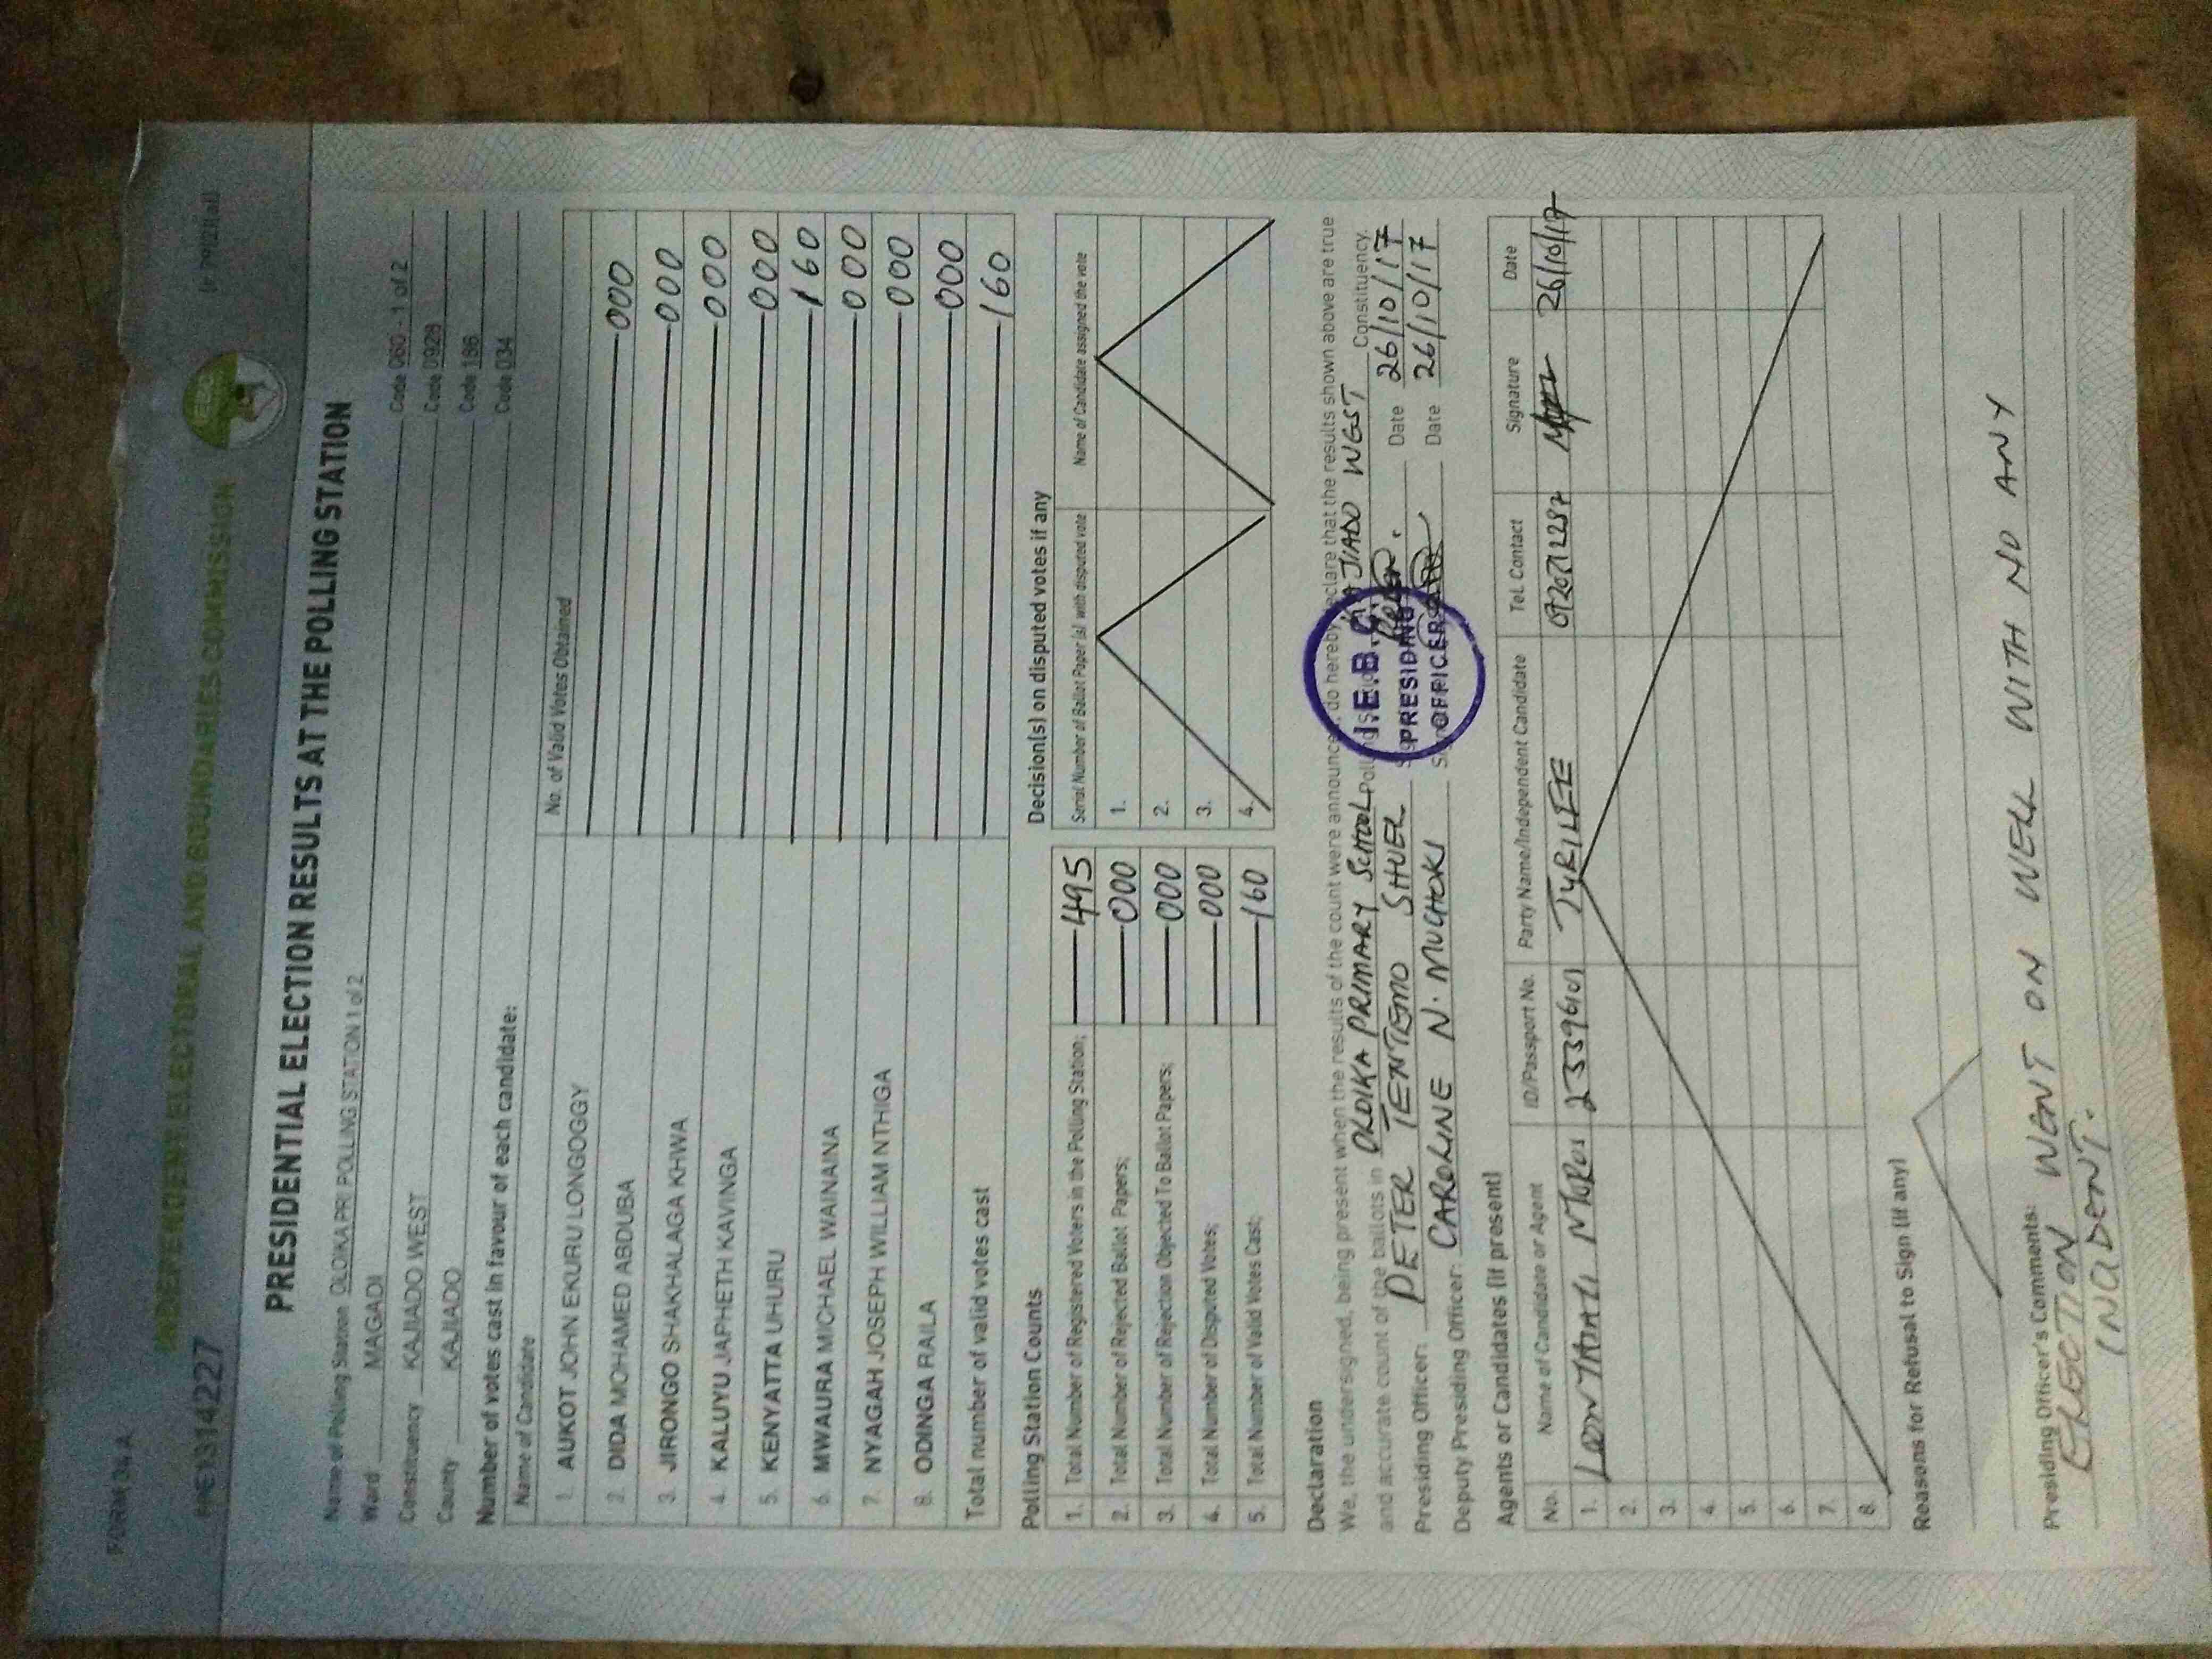 FORM 34 A
INDEPENDENT ELECTORAL AND BOUNDARIES COMMISSION
IEBC
(r. 79(2)(a))
PRESIDENTIAL ELECTION RESULTS AT THE POLLING STATION
Name of Polling Station OLOIKA PRI POLLING STATION 1 of 2 Code 060 - 1 of 2
Ward MAGADI Code 0928
Constituency KAJIADO WEST Code 186
County KAJIADO Code 034
Number of votes cast in favour of each candidate:
Name of Candidate No. of Valid Votes Obtained
1. AUKOT JOHN EKURU LONGOGGY 000
2. DIDA MOHAMED ABDUBA 000
3. JIRONGO SHAKHALAGA KHWA 000
4. KALUYU JAPHETH KAVINGA 000
5. KENYATTA UHURU 160
6. MWAURA MICHAEL WAINAINA 000
7. NYAGAH JOSEPH WILLIAM NTHIGA 000
8. ODINGA RAILA 000
Total number of valid votes cast 160
Polling Station Counts
1. Total Number of Registered Voters in the Polling Station; 495
2. Total Number of Rejected Ballot Papers; 000
3. Total Number of Rejection Objected To Ballot Papers; 000
4. Total Number of Disputed Votes; 000
5. Total Number of Valid Votes Cast; 160
Decision(s) on disputed votes if any
Serial Number of Ballot Paper (s) with disputed vote Name of Candidate assigned the vote
1.
2.
3.
4.
Declaration
We, the undersigned, being present when the results of the count were announced, do hereby declare that the results shown above are true
and accurate count of the ballots in OLOIKA PRIMARY SCHOOL KAJIADO WEST Constituency.
Presiding Officer: PETER TENTEMO SHUEL Date 26/10/17
Deputy Presiding Officer: CAROLINE N. MUCHOKI Date 26/10/17
I.E.B.C.
PRESIDING
OFFICER
Agents or Candidates (if present)
No. Name of Candidate or Agent ID/Passport No. Party Name/Independent Candidate Tel. Contact Signature Date
1. JUBILEE 26/10/17
2.
3.
4.
5.
6.
7.
8.
Reasons for Refusal to Sign (if any)
Presiding Officer's Comments:
ELECTION WENT ON WELL WITH NO ANY
INCIDENT.